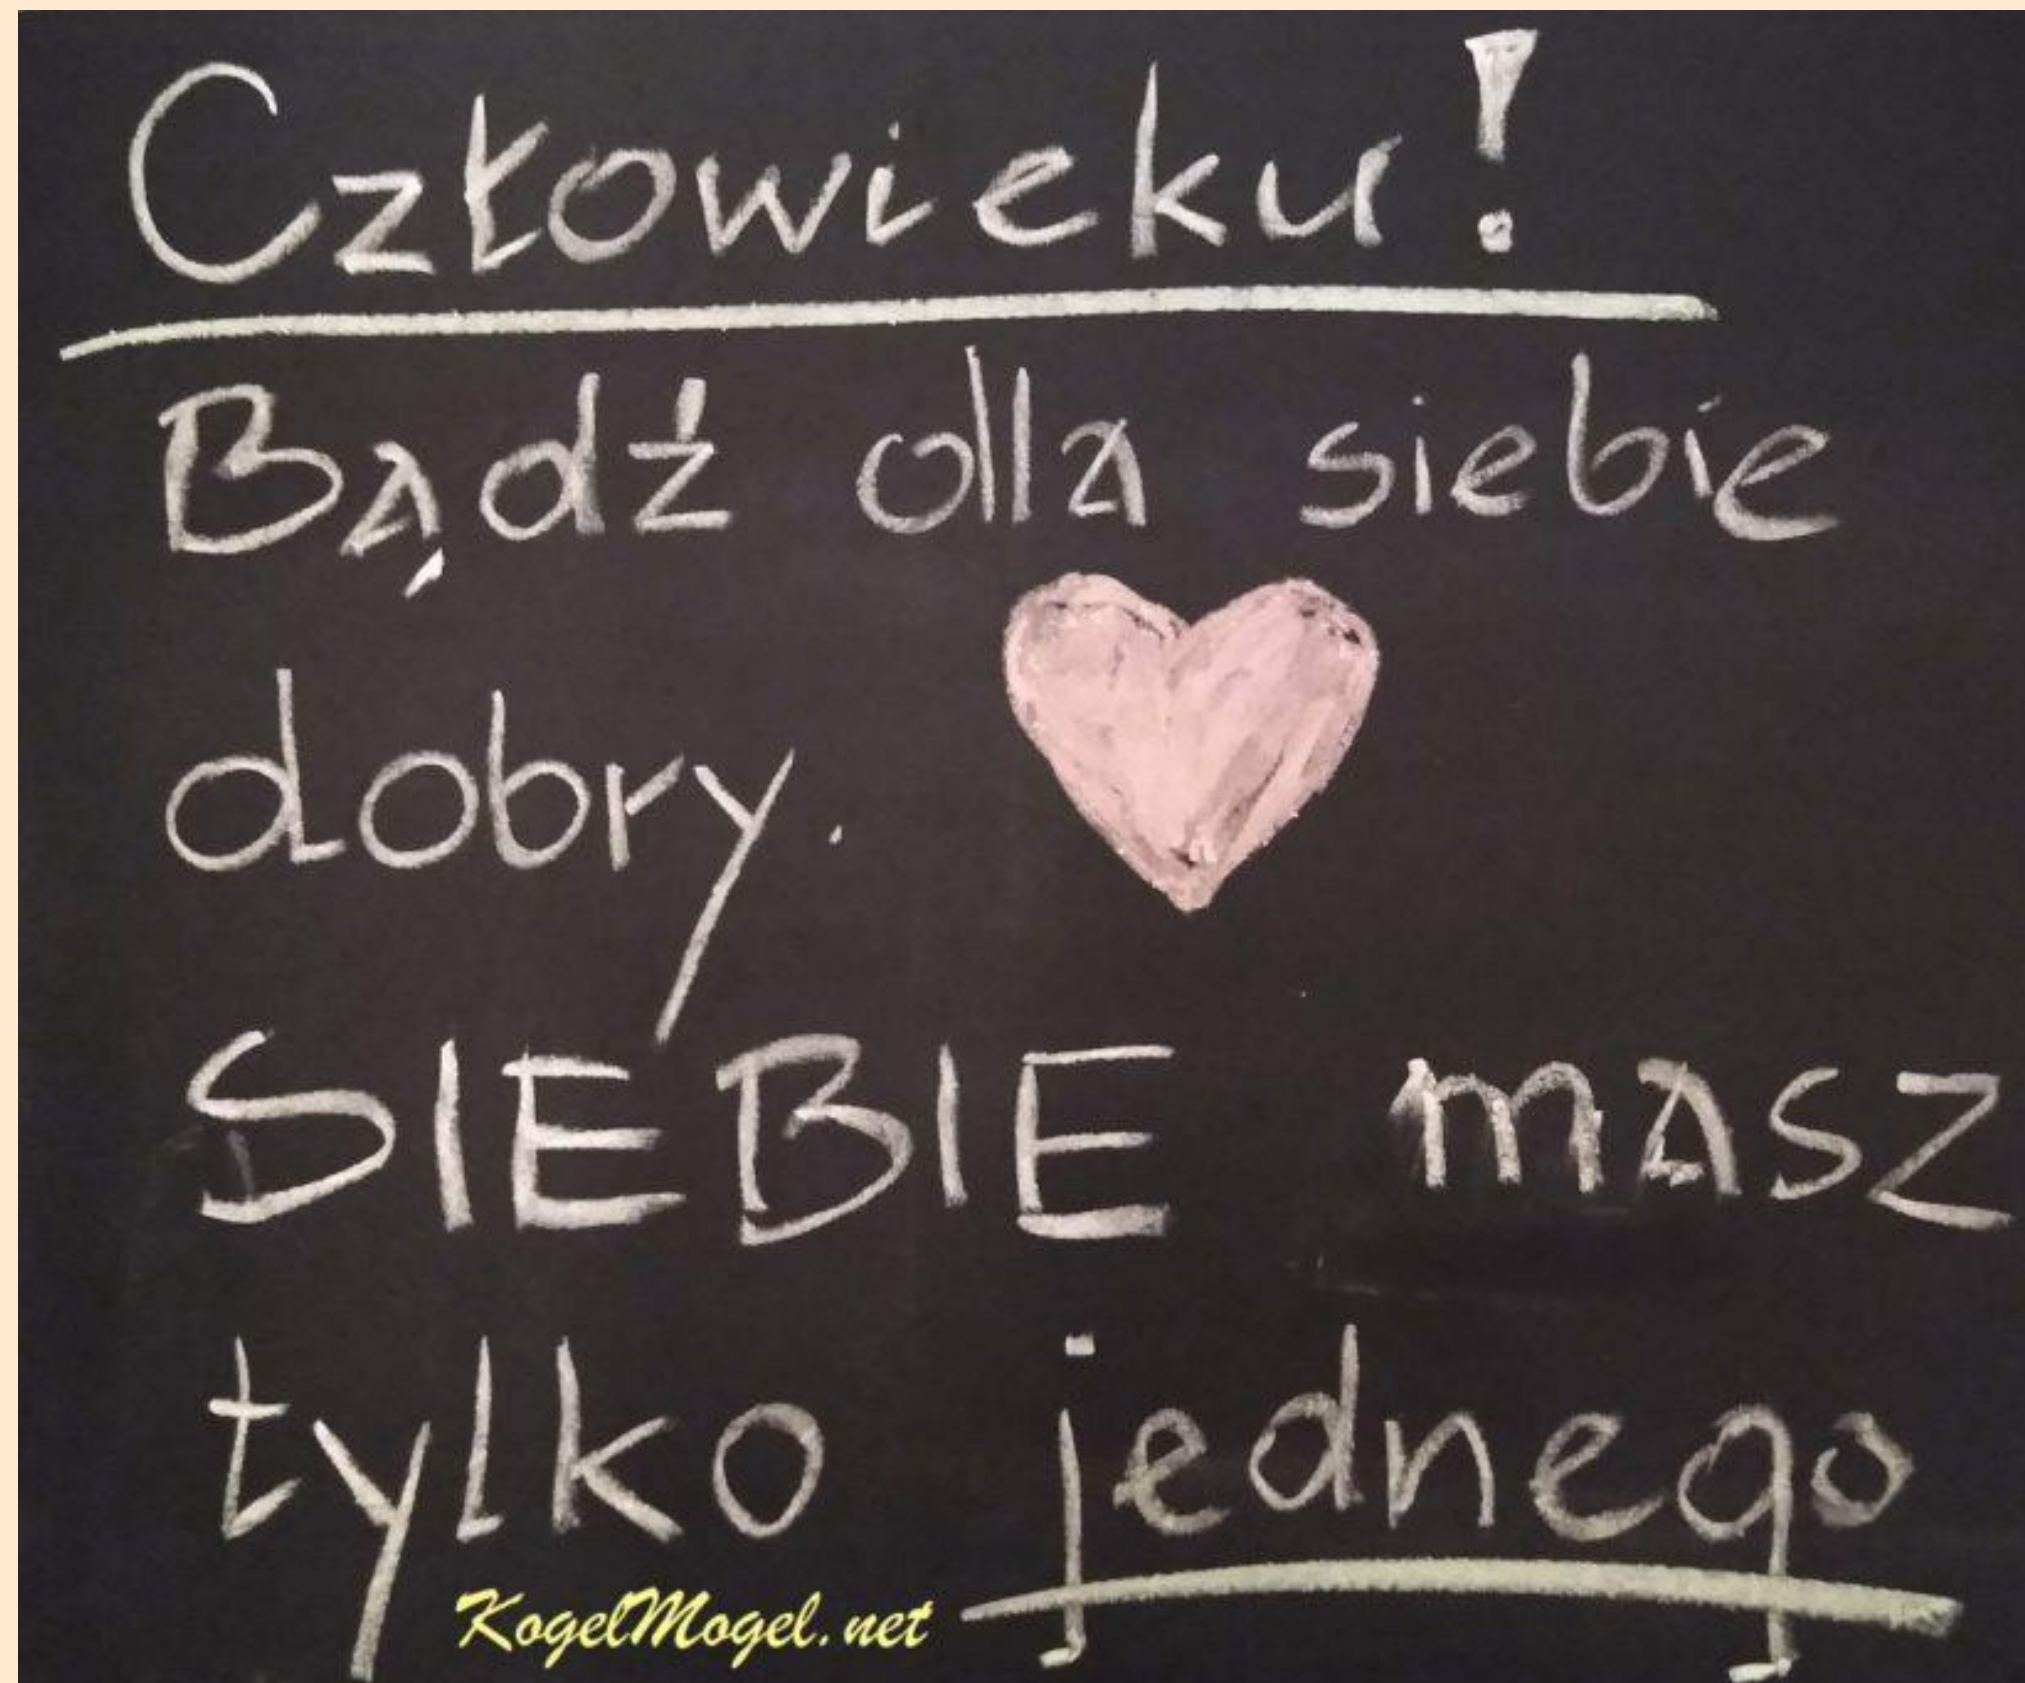 Człowieku!
Bądź dla siebie
dobry.
SIEBIE masz
tylko jednego
KogelMogel.net